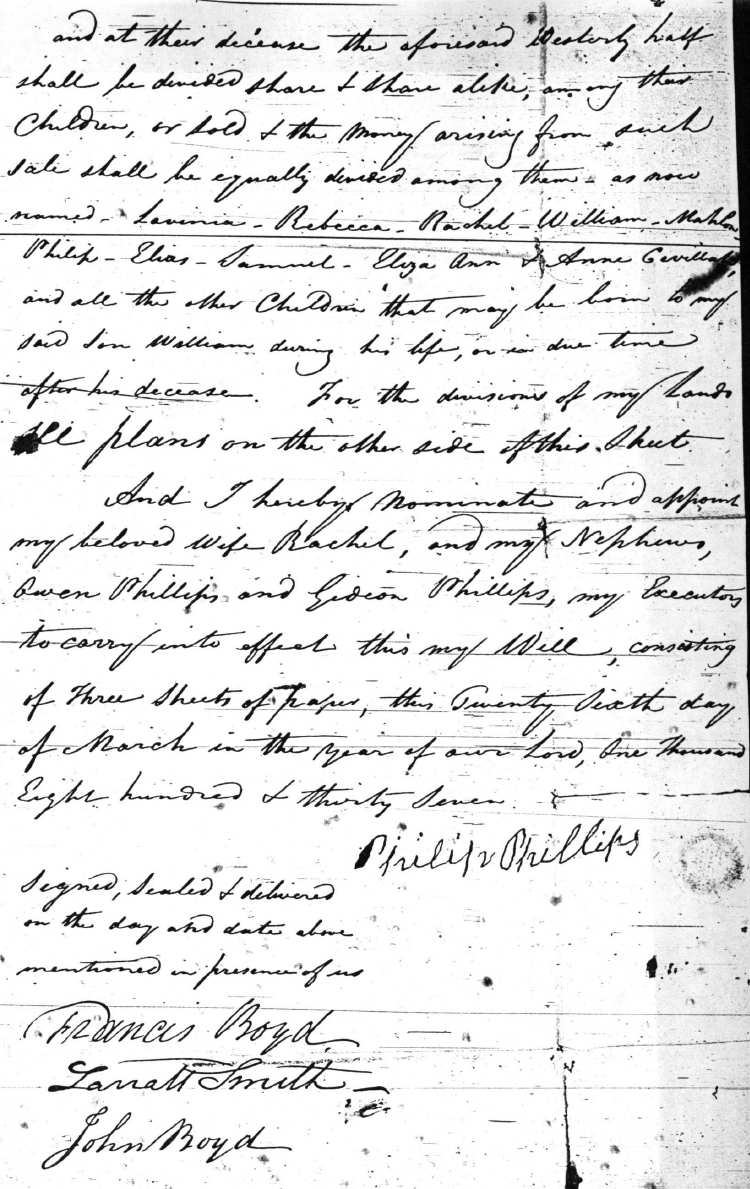 and at their decease the aforesaid Westerly half
shall be divided share & share alike, among their
Children, or Sold & the Money arising from such
sale shall be equally divided among them - as now
named - Lavinia - Rebecca - Rachel - William - Mahlon
Philip - Elias - Samuel - Eliza Ann & Anne
and all the other Children that may be born to my
said Son William during his life, or in due time
after his decease. For the divisions of my Lands
see plans on the other side of this Sheet
And I hereby Nominate and appoint
my beloved Wife Rachel, and my Nephews,
Owen Phillips and Gideon Phillips, my Executors
to carry into effect this my Will, consisting
of Three Sheets of paper, this Twenty Sixth day
of March in the year of our Lord, One Thousand
Eight hundred & thirty Seven.
Philip Phillips
Signed, Sealed & delivered
on the day and date above
mentioned in presence of us
Francis Boyd
Larratt Smith
John Boyd